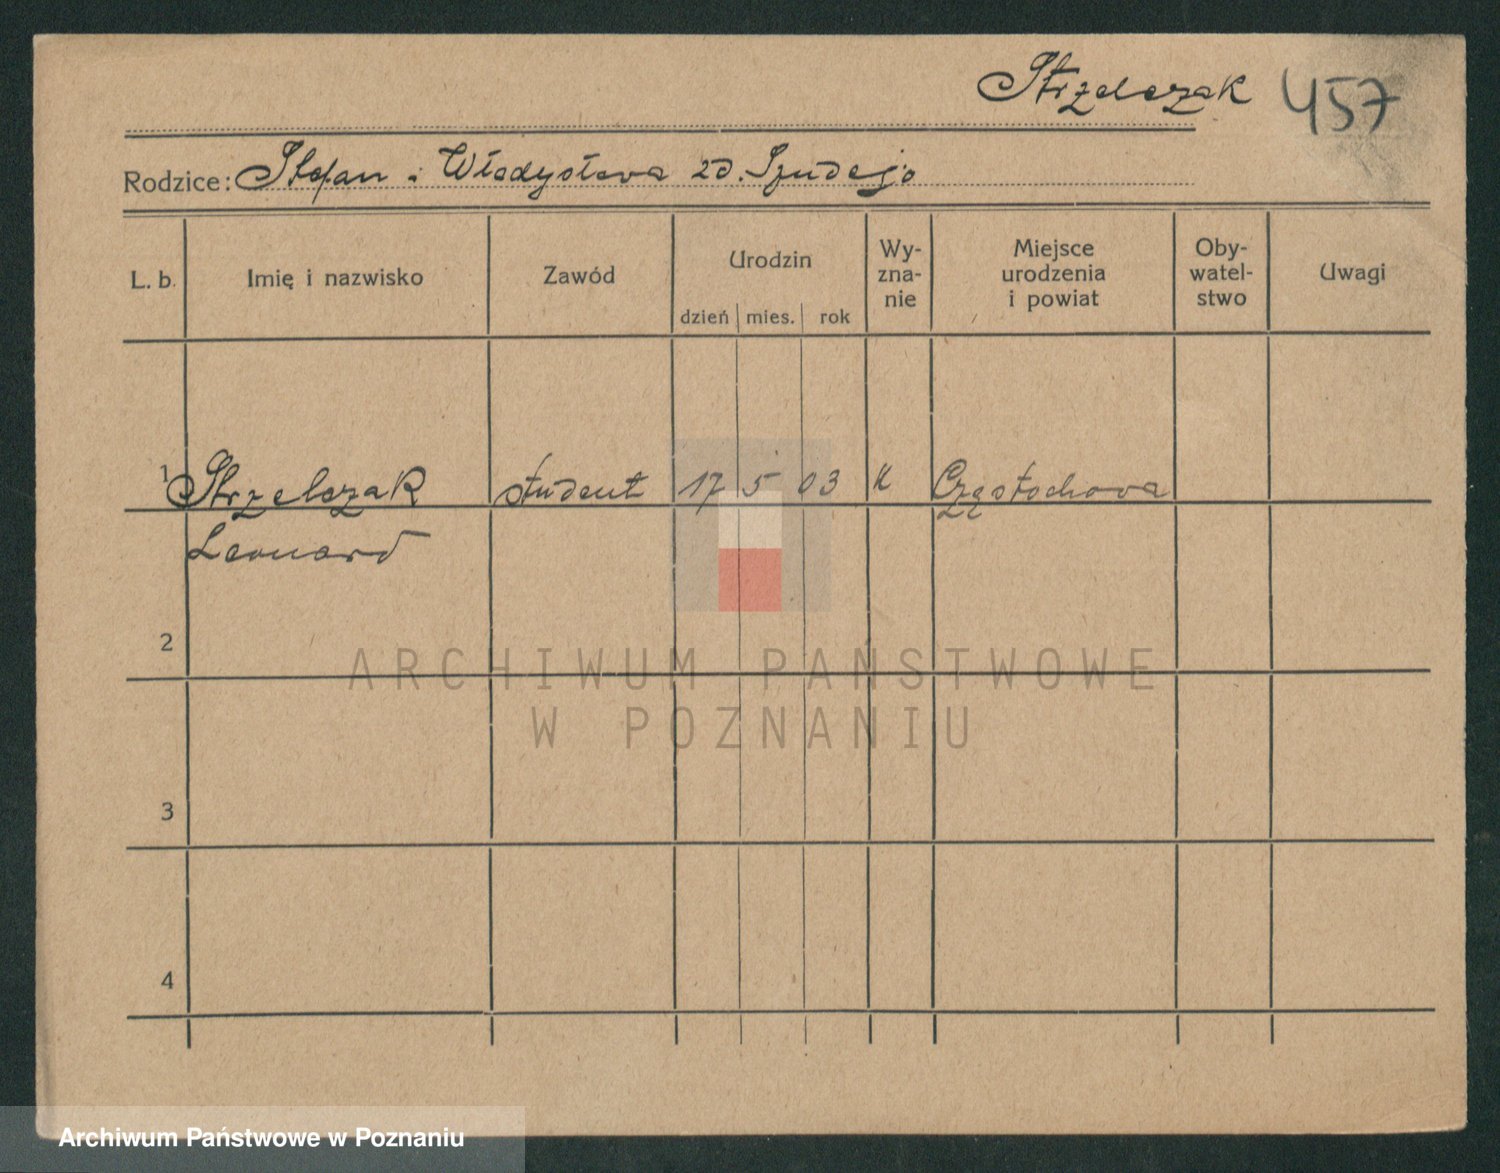 Strzelczak 457
Rodzice: Stefan i Władysława zd. Szudejo
L. b. Imię i nazwisko Zawód Urodzin Wy-zna-nie Miejsce urodzenia i powiat Oby-watel-stwo Uwagi
dzień mies. rok
1 Strzelczak student 17 5 03 k Częstochowa
Leonard
2
ARCHIWUM PAŃSTWOWE
W POZNANIU
3
4
Archiwum Państwowe w Poznaniu